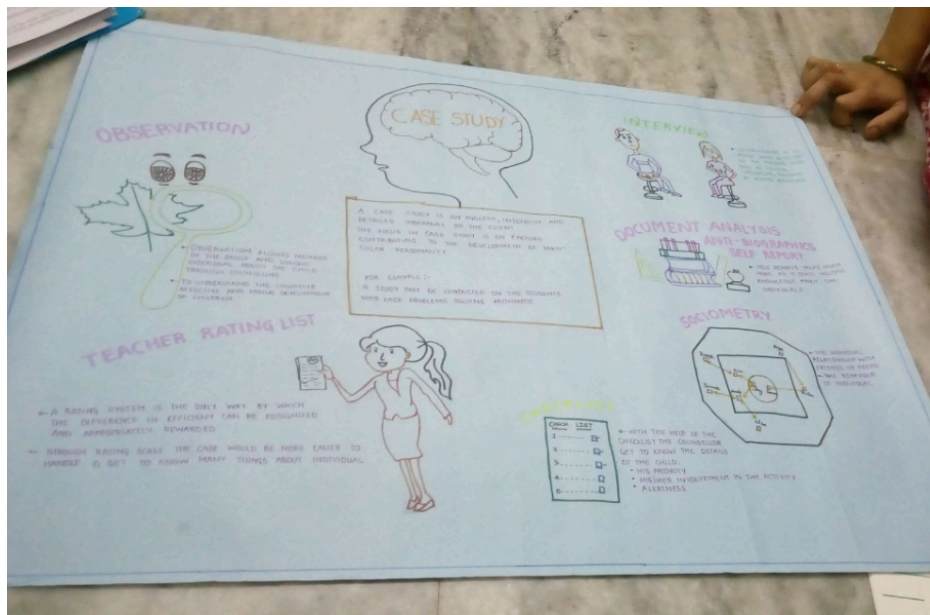 CASE STUDY
OBSERVATION
OBSERVATION ALLOWS MEMBERS
OF THE GROUP AND
INDIVIDUAL ASSIST THE CHILD
THROUGH COUNSELING
TO UNDERSTAND THE COGNITIVE
AFFECTIVE AND DEVELOPMENT
OF CHILDREN
A CASE STUDY IS AN INTENSIVE AND
DETAILED OR THE CLIENT
THE FOCUS IN CASE STUDY IS ON FACTORS
CONTRIBUTING TO THE DEVELOPMENT OF PARTI
CULAR PERSONALITY
FOR EXAMPLE:-
A STUDY MAY BE CONDUCTED ON THE STUDENTS
WHO FACE PROBLEMS SOLVING ARITHMETIC
INTERVIEW
DOCUMENT ANALYSIS
ANTI-BIOGRAPHICS
SELF REPORT
SELF REPORTS
KNOWLEDGE ABOUT THE
INDIVIDUALS
SOCIOMETRY
THE INDIVIDUAL
RELATIONSHIP WITH
FRIENDS OR PEERS
BEHAVIOUR
OF INDIVIDUAL
TEACHER RATING LIST
A RATING SYSTEM IS THE ONLY WAY BY WHICH
THE DIFFERENCE IN EFFICIENCY CAN BE RECOGNIZED
AND APPROPRIATELY REWARDED
THROUGH RATING SCALE THE CASE WOULD BE MORE EASIER TO
HANDLE & GET TO KNOW MANY THINGS ABOUT INDIVIDUAL
CHECK LIST
1
2
3
4
5
WITH THE HELP OF THE
CHECKLIST THE COUNSELLOR
GET TO KNOW THE DETAILS
OF THE CHILD.
HIS PRIORITY
HIS/HER INVOLVEMENT IN THE ACTIVITY
ALERTNESS